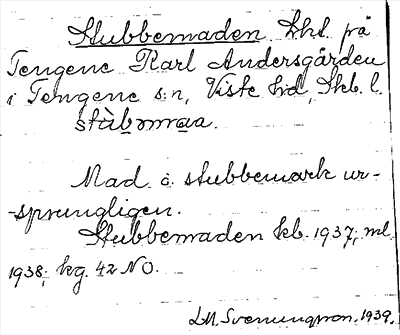 Stubbemaden Lht. på
Tengene Karl Andersgården
i Tengene s:n, Viste hd, Skb. l.
stùbənmraa.
Mad å stubbemark ur-
-sprungligen.
Stubbemaden kb. 1937; ml
1938; kg. 42 NO.
L.M. Svenungsson. 1939.